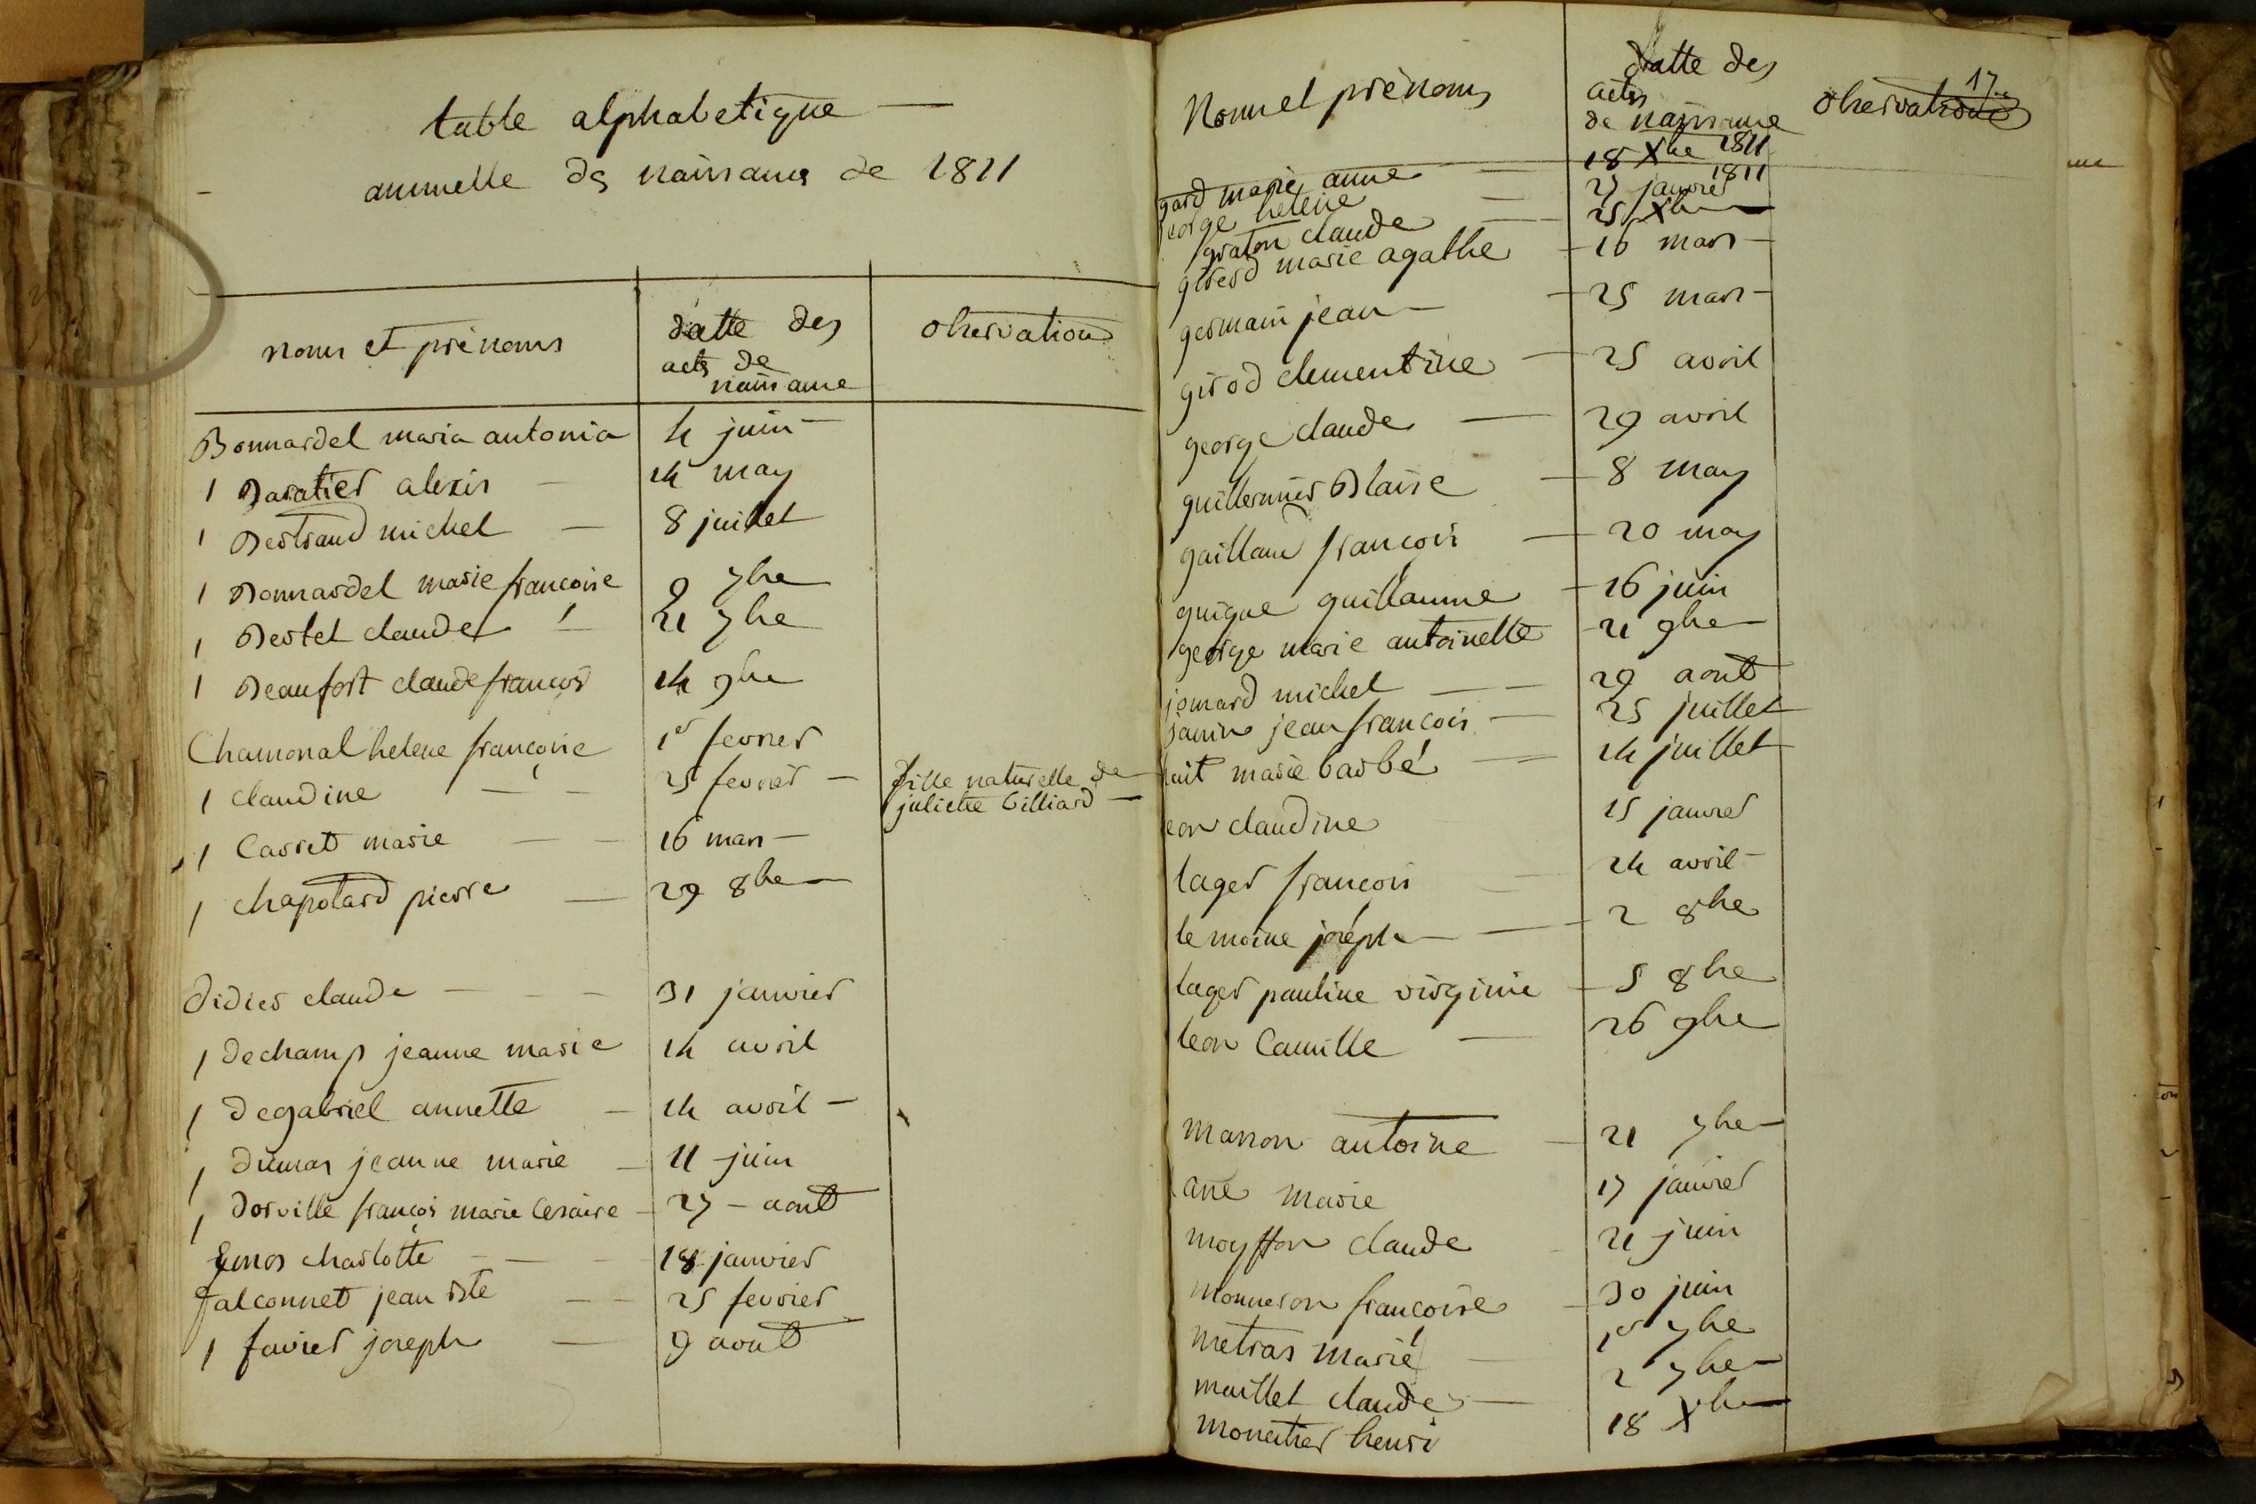 table alphabetique
annuelle des naissances de 1811
noms et prénoms
datte des
actes de
naissance
observations
Bonnardel maria antonia 4 juin
1 Baratier alexis 14 may
1 Bertrand michel 8 juillet
1 Bonnardel marie francoise 9 7bre
1 Bertet claude 21 7bre
1 Beaufort claude françois 14 9bre
Chamonal helene françoise 1er fevrier
1 claudine 25 fevrier fille naturelle de
juliette billiard
1 Carret marie 16 mars
1 chapotard pierre 29 8bre
Didier claude 31 janvier
1 dechamp jeanne marie 14 avril
1 degabriel annette 14 avril
1 dumas jeanne marie 11 juin
1 dorville françois marie Cesaire 27 aout
charlotte 18 janvier
falconnet jean Bte 25 fevrier
1 favier joseph 9 aout
17
Noms et prénoms
datte des
actes
de naissance
observations
gard marie anne 18 Xbre 1811
george helene 27 janvier 1811
graton claude 25 Xbre
girerd marie agathe 16 mars
germain jean 25 mars
girod clementine 25 avril
george claude 29 avril
guillermier Blaise 8 may
gaillard françois 20 may
guigue guillaume 16 juin
george marie antoinette 21 9bre
jomard michel 29 aout
janin jean françois 25 juillet
marie barbé 14 juillet
leon claudine 15 janvier
lager françois 24 avril
le moine joseph 2 8bre
lager pauline virginie 5 8bre
leon Camille 26 9bre
manon antoine 21 7bre
marie 17 janvier
claude 21 juin
monneron francoise 30 juin
metras marie 1er 7bre
maillet claude 2 7bre
monetier henri 18 Xbre